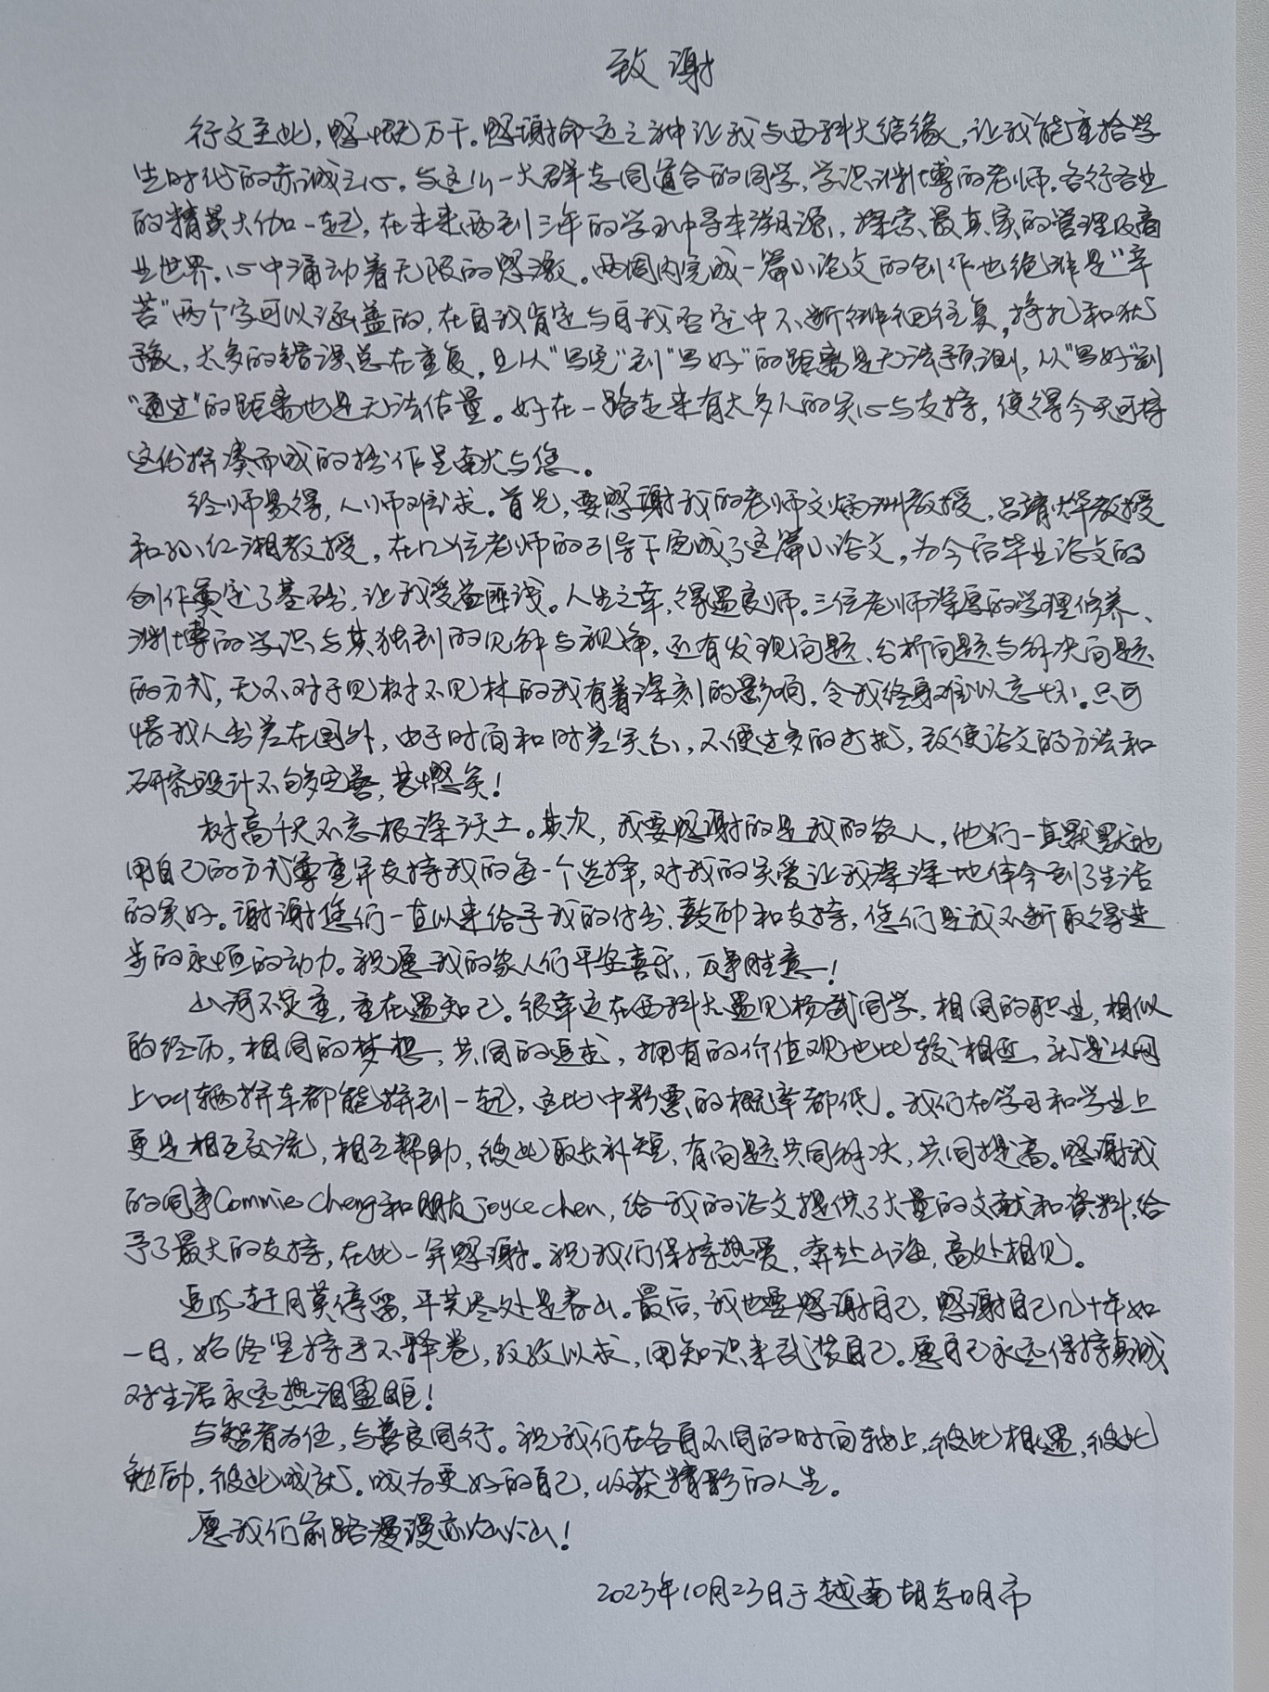 致谢
行文至此，感慨万千。感谢命运之神让我与西科大结缘，让我能重拾学
生时代的赤诚之心。与这么一大群志同道合的同学，学识渊博的老师，各行各业
的精英大伽一起，在未来两到三年的学习中寻本溯源，探索最真实的管理及商
业世界，心中涌动着无限的感激。两周内完成一篇小论文的创作也绝非是“辛
苦”两个字可以涵盖的，在自我肯定与自我否定中不断徘徊往复，挣扎和犹
豫，太多的错误总在重复，且从“写完”到“写好”的距离是无法预测，从“写好”到
“通过”的距离也是无法估量。好在一路走来有太多人的关心与支持，使得今天可将
这份拼凑而成的拙作呈献与您。
经师易得，人师难求。首先，要感谢我的老师文炳洲教授，吕靖烨教授
和孙红湘教授，在几位老师的引导下完成了这篇小论文，为今后毕业论文的
创作奠定了基础，让我受益匪浅。人生之幸，得遇良师。三位老师深厚的学理修养、
渊博的学识与其独到的见解与视角，还有发现问题、分析问题与解决问题
的方式，无不对于见树不见林的我有着深刻的影响，令我终身难以忘怀。只可
惜我人出差在国外，由于时间和时差关系，不便过多的打扰，致使论文的方法和
研究设计不够完善，甚憾矣！
树高千尺不忘根深沃土。其次，我要感谢的是我的家人，他们一直默默地
用自己的方式尊重并支持我的每一个选择，对我的关爱让我深深地体会到了生活
的美好。谢谢您们一直以来给予我的付出、鼓励和支持，您们是我不断取得进
步的永恒的动力。祝愿我的家人们平安喜乐，万事胜意！
山河不足重，重在遇知己。很幸运在西科大遇见杨武同学，相同的职业，相似
的经历，相同的梦想，共同的追求，拥有的价值观也比较相近，就是从网
上叫辆拼车都能拼到一起，这比中彩票的概率都低。我们在学习和学业上
更是相互交流，相互帮助，彼此取长补短，有问题共同解决，共同提高。感谢我
的同事Connie Cheng和朋友joyce chen，给我的论文提供了大量的文献和资料，给
予了最大的支持，在此一并感谢。祝我们保持热爱，奔赴山海，高处相见。
追风赶月莫停留，平芜尽处是春山。最后，我也要感谢自己，感谢自己几十年如
一日，始终坚持手不释卷，孜孜以求，用知识来武装自己。愿自己永远保持真诚，
对生活永远热泪盈眶！
与智者为伍，与善良同行。祝我们在各自不同的时间轴上，彼此相遇，彼此
勉励，彼此成就。成为更好的自己，收获精彩的人生。
愿我们前路漫漫亦灿灿！
2023年10月23日于越南胡志明市